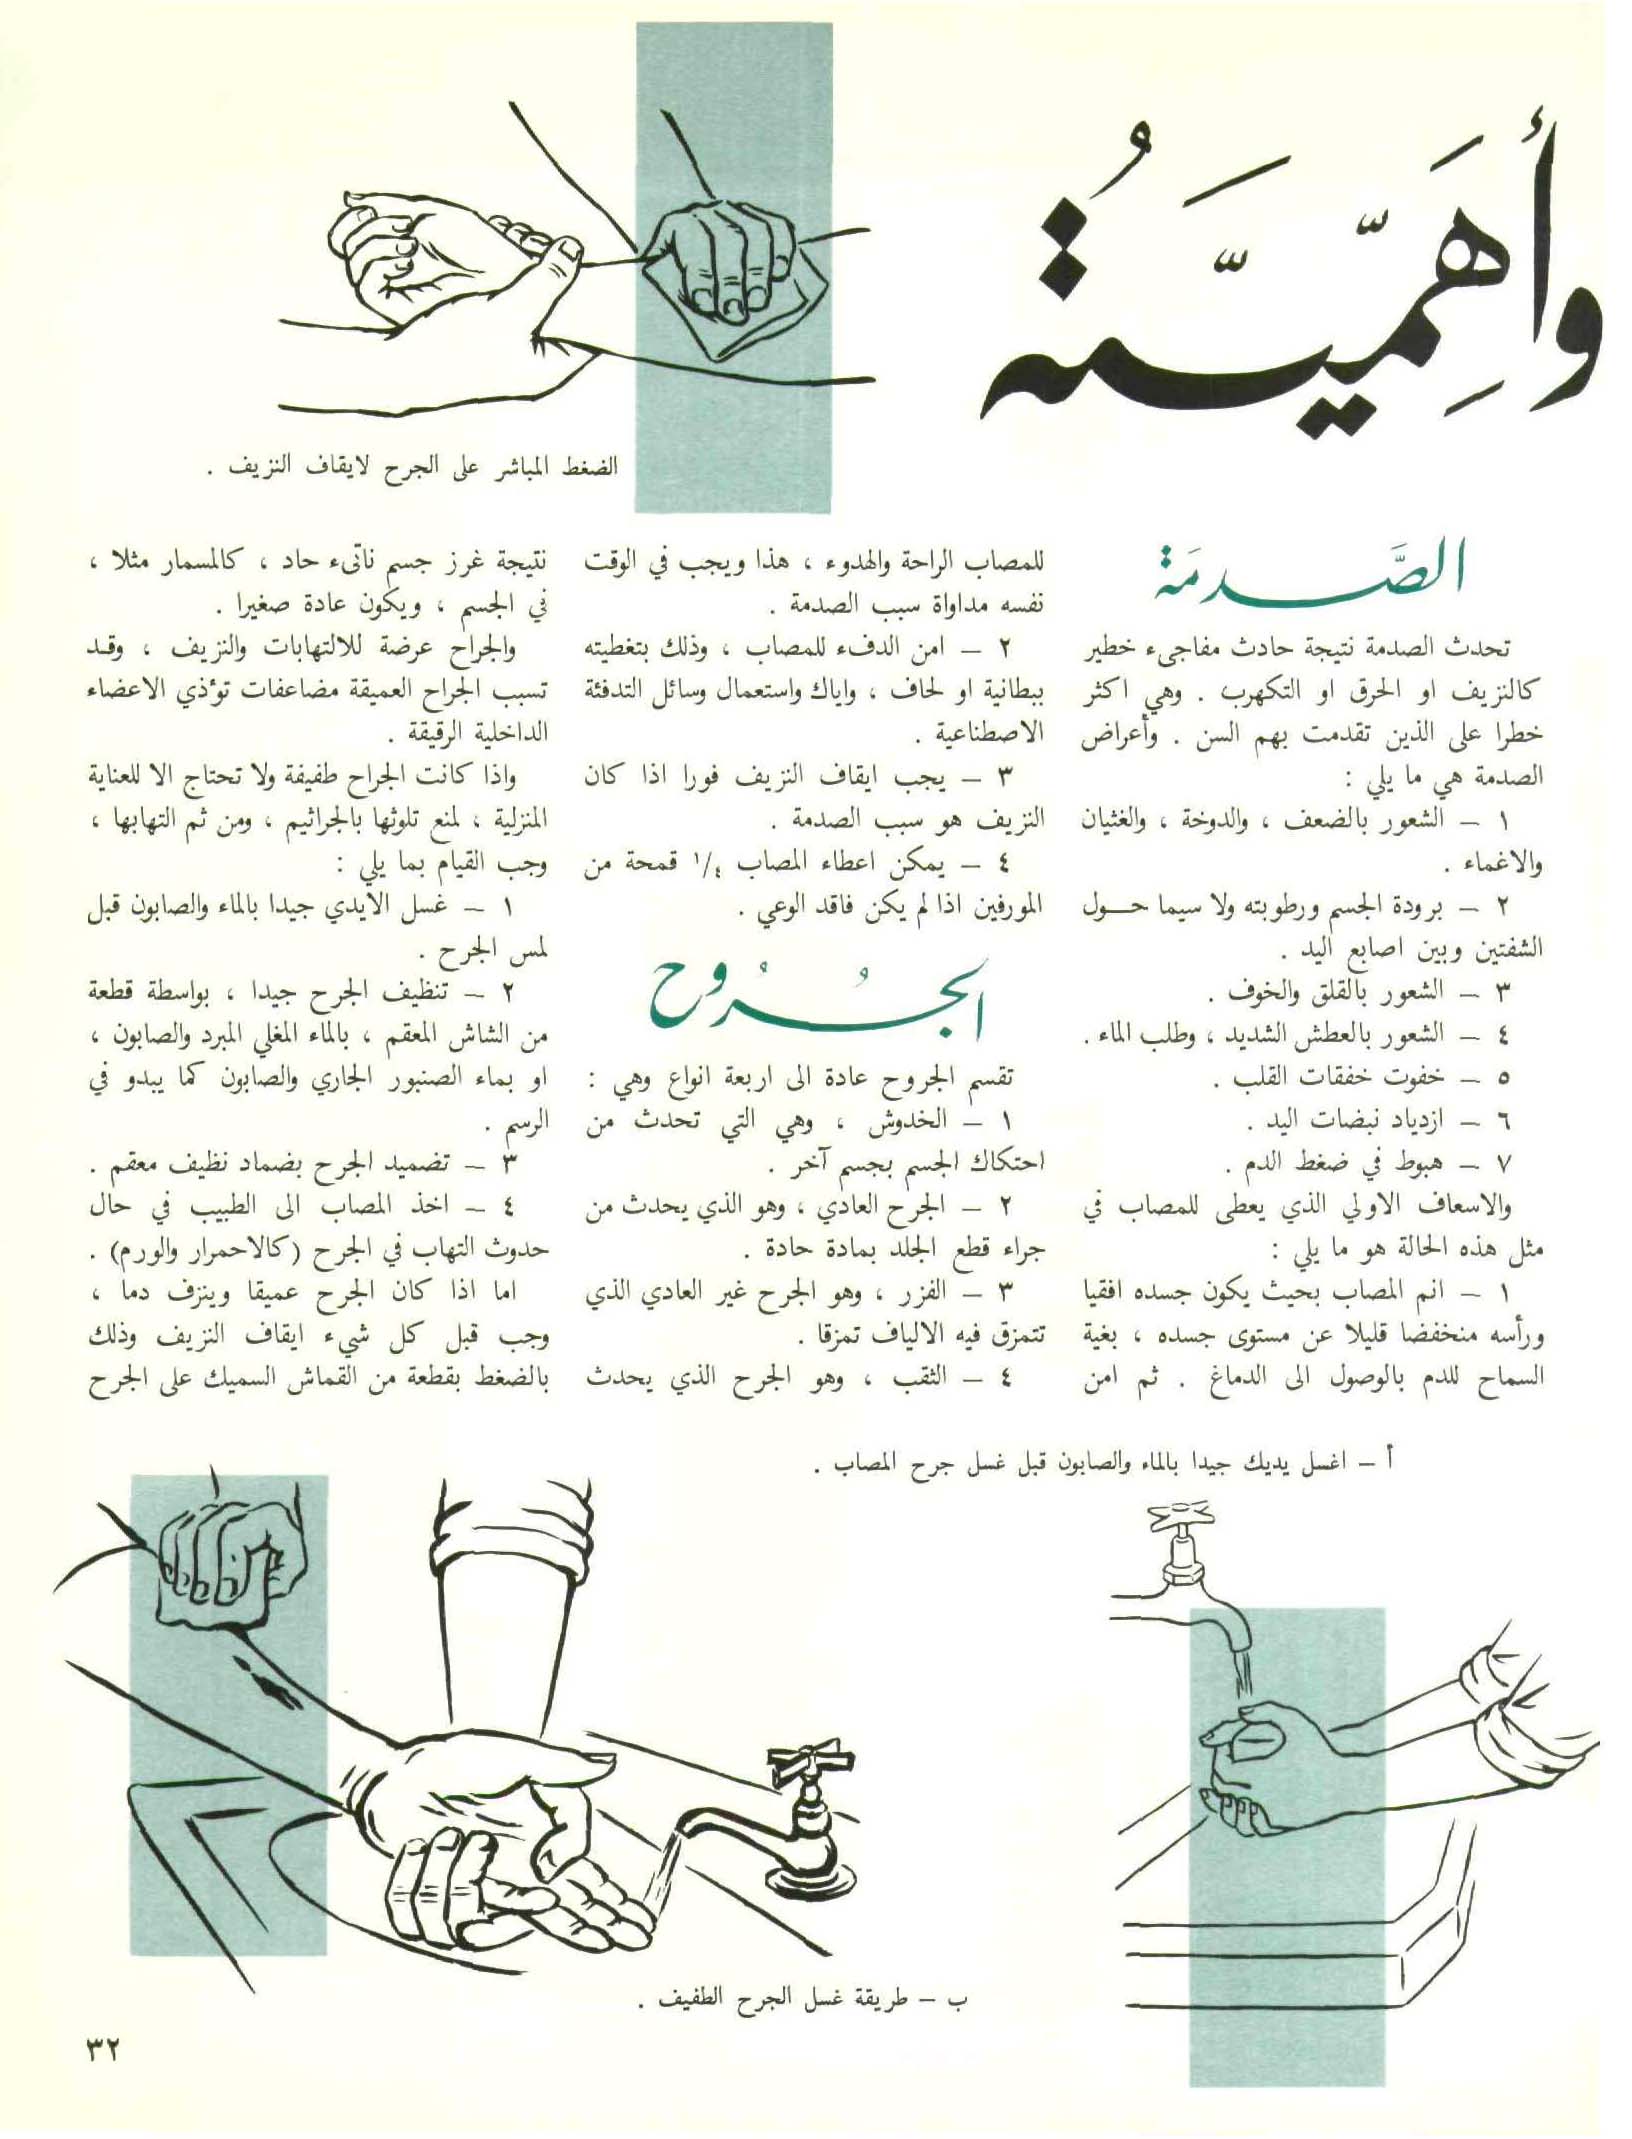 وأَهَمِّيَّتَةُ
الضغط المباشر على الجرح لايقاف النزيف .
الصَّدمَة
تحدث الصدمة نتيجة حادث مفاجىء خطير
كالنزيف او الحرق او التكهرب . وهي اكثر
خطرا على الذين تقدمت بهم السن . وأعراض
الصدمة هي ما يلي :
١ – الشعور بالضعف ، والدوخة ، والغثيان
والاغماء .
٢ – برودة الجسم ورطوبته ولا سيما حول
الشفتين وبين اصابع اليد .
٣ – الشعور بالقلق والخوف .
٤ – الشعور بالعطش الشديد ، وطلب الماء .
٥ – خفوت خفقات القلب .
٦ – ازدياد نبضات اليد .
٧ – هبوط في ضغط الدم .
والاسعاف الاولي الذي يعطى للمصاب في
مثل هذه الحالة هو ما يلي :
١ – انم المصاب بحيث يكون جسده افقيا
ورأسه منخفضا قليلا عن مستوى جسده ، بغية
السماح للدم بالوصول الى الدماغ . ثم امن
للمصاب الراحة والهدوء ، هذا ويجب في الوقت
نفسه مداواة سبب الصدمة .
٢ – امن الدفء للمصاب ، وذلك بتغطيته
ببطانية او لحاف ، واياك واستعمال وسائل التدفئة
الاصطناعية .
٣ – يجب ايقاف النزيف فورا اذا كان
النزيف هو سبب الصدمة .
٤ – يمكن اعطاء المصاب ١/٤ قمحة من
المورفين اذا لم يكن فاقد الوعي .
الجُرُوح
تقسم الجروح عادة الى اربعة انواع وهي :
١ – الخدوش ، وهي التي تحدث من
احتكاك الجسم بجسم آخر .
٢ – الجرح العادي ، وهو الذي يحدث من
جراء قطع الجلد بمادة حادة .
٣ – الفزر ، وهو الجرح غير العادي الذي
تتمزق فيه الالياف تمزقا .
٤ – الثقب ، وهو الجرح الذي يحدث
نتيجة غرز جسم ناتىء حاد ، كالمسمار مثلا ،
في الجسم ، ويكون عادة صغيرا .
والجراح عرضة للالتهابات والنزيف ، وقد
تسبب الجراح العميقة مضاعفات تؤذي الاعضاء
الداخلية الرقيقة .
واذا كانت الجراح طفيفة ولا تحتاج الا للعناية
المنزلية ، لمنع تلوثها بالجراثيم ، ومن ثم التهابها ،
وجب القيام بما يلي :
١ – غسل الايدي جيدا بالماء والصابون قبل
لمس الجرح .
٢ – تنظيف الجرح جيدا ، بواسطة قطعة
من الشاش المعقم ، بالماء المغلي المبرد والصابون ،
او بماء الصنبور الجاري والصابون كما يبدو في
الرسم .
٣ – تضميد الجرح بضماد نظيف معقم .
٤ – اخذ المصاب الى الطبيب في حال
حدوث التهاب في الجرح (كالاحمرار والورم) .
اما اذا كان الجرح عميقا وينزف دما ،
وجب قبل كل شيء ايقاف النزيف وذلك
بالضغط بقطعة من القماش السميك على الجرح
أ – اغسل يديك جيدا بالماء والصابون قبل غسل جرح المصاب .
ب – طريقة غسل الجرح الطفيف .
٣٢